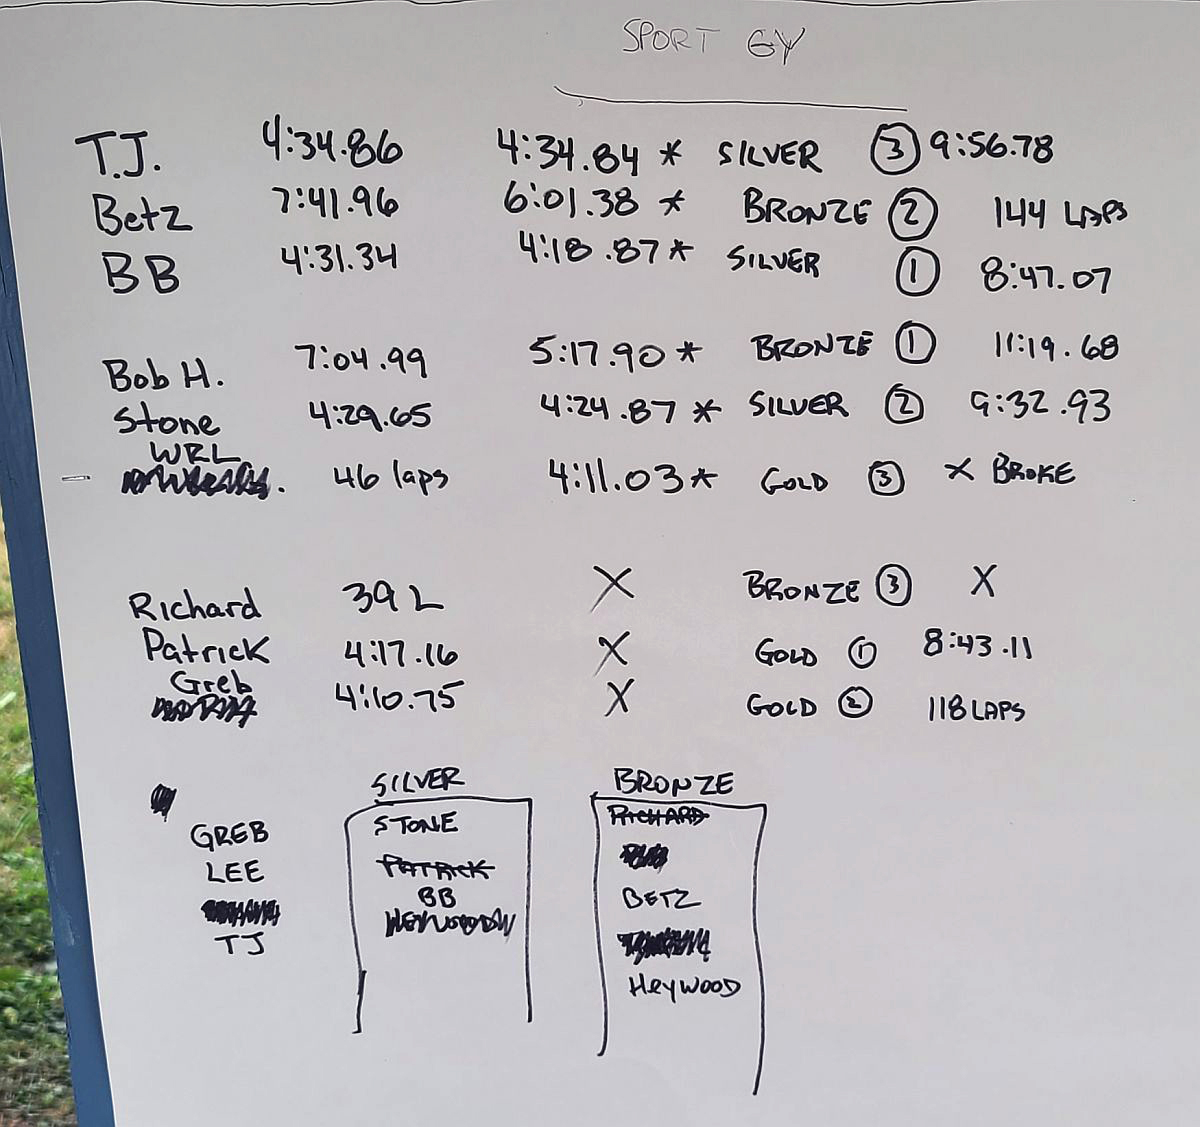 SPORT GY
T.J. 4:34.86 4:34.84 * SILVER 3 9:56.78
Betz 7:41.96 6:01.38 * BRONZE 2 144 LAPS
BB 4:31.34 4:18.87 * SILVER 1 8:47.07
Bob H. 7:04.99 5:17.90 * BRONZE 1 11:19.68
Stone 4:29.65 4:24.87 * SILVER 2 9:32.93
WRL
46 laps 4:11.03 * GOLD 3 X BROKE
Richard 39 L X BRONZE 3 X
Patrick 4:17.16 X GOLD 1 8:43.11
Greb 4:10.75 X GOLD 2 118 LAPS
SILVER BRONZE
GREB STONE RICHARD
LEE PATRICK
BB BETZ
TJ
HeyWOOD